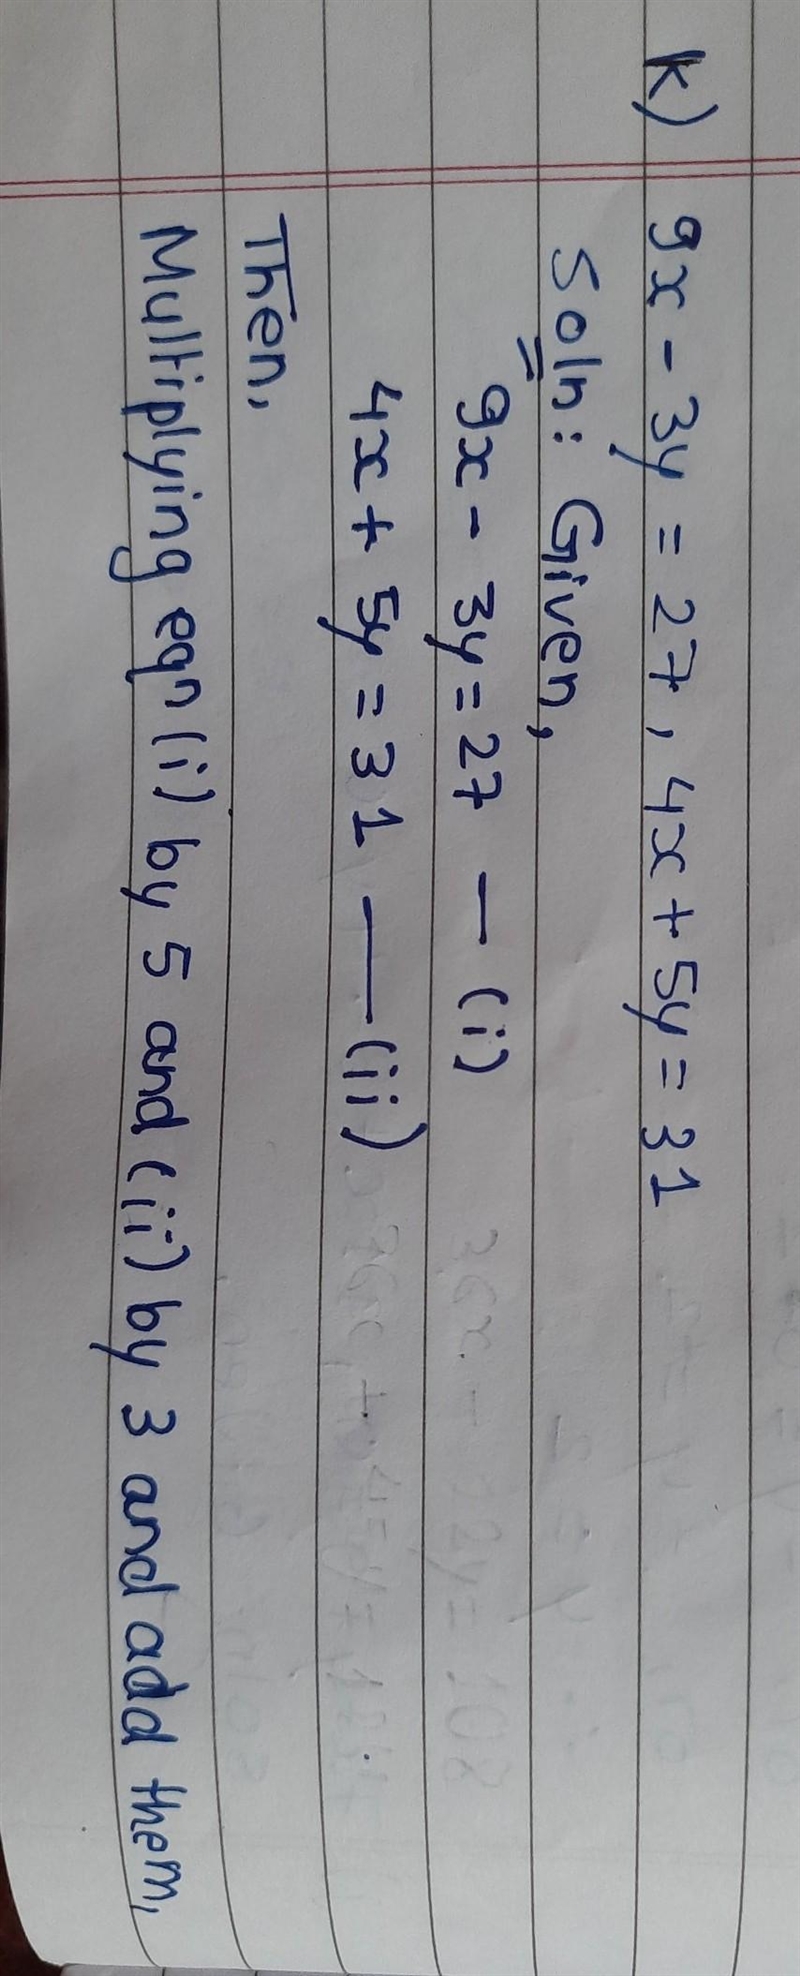 k) 9x - 3y = 27, 4x + 5y = 31
Soln: Given,
9x - 3y = 27 — (i)
4x + 5y = 31 — (ii)
Then,
Multiplying eqn (i) by 5 and (ii) by 3 and add them,